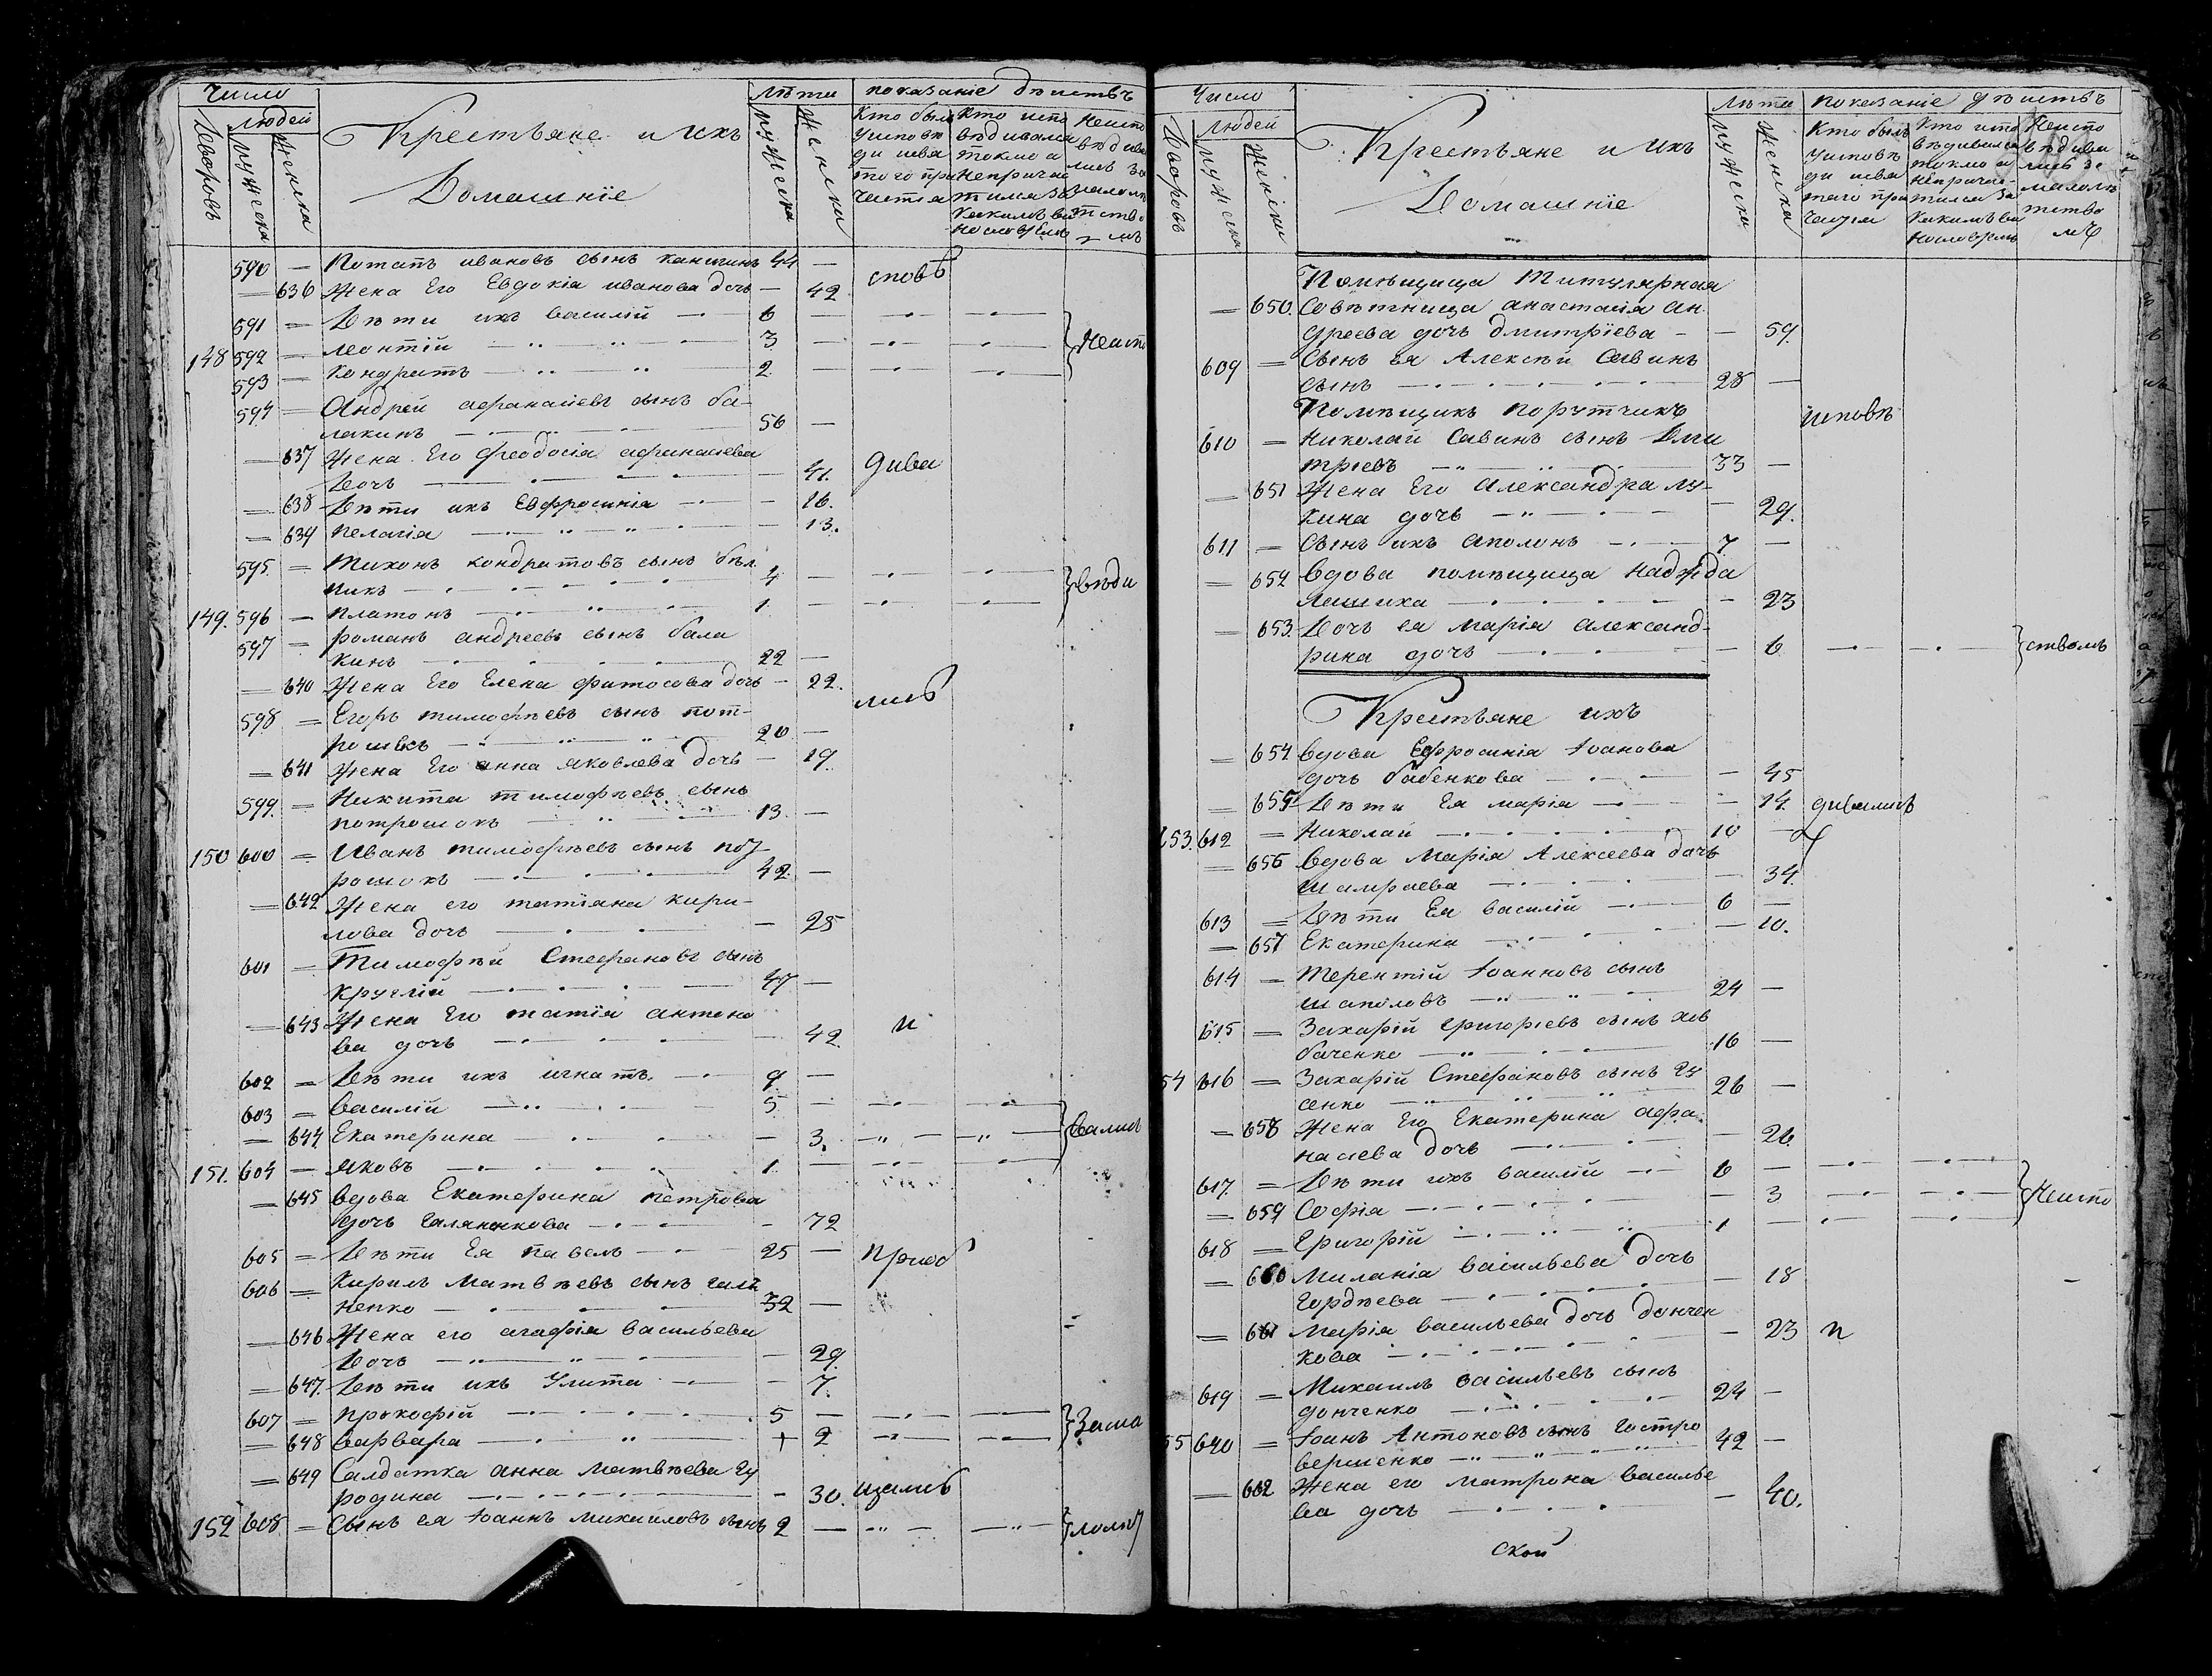 Число
людей
Дворовъ
мужеска
женска
Крестьяне и Ихъ
Домашніе
лѣта
мужеска
женска
показаніе дѣиствъ
Кто былъ
уисповѣ
ди исва
таго при
частія
Кто испо
вѣдивался
токмо а
Непричас
тился За
Какимъ ви
Нословіемъ
Неиспо
вѣдива
лись За
малолѣ
тство
мъ
590 — Потапъ ивановъ сынъ 44 —
— 636 Жена Его Евдокіа иванова дочь — 42
сповѣ
591 = Дѣти ихъ василій — 6 —
148 592 — леонтій — 3 —
Неиспо
593 — Кондратъ — 2
594 = Андрей афанасиевъ сынъ ба-
лакинъ — 56 —
— 637 Жена Его Феодосіа афанасиева
Дочь — 41.
дива
= 638 Дѣти ихъ Евфросиніа — 16.
= 639 пелагіа — 13.
595. = Тихонъ кондратовъ сынъ бѣл
никъ — 4 —
вѣди
149. 596 — Платонъ — 1. —
597 = романъ андреевъ сынъ бала
кинъ — 22 —
— 640 Жена Его Елена дочь — 22.
лись
598 = Егоръ тимофѣевъ сынъ пот-
рошокъ — 20 —
= 641 Жена Его анна яковлева дочь — 19
599. = Никита тимофѣевъ сынъ
потрошокъ — 13. —
150 600 = Иванъ тимофѣевъ сынъ пот-
рошокъ — 42. —
— 642 Жена его татіана кири-
лова дочь — 25
601 = Тимофѣй Стефановъ сынъ
Круглій — 47 —
— 643 Жена Его татіа антоно
ва дочь — 42.
и
602 = Дѣти ихъ игнатъ. — 9 —
603 = василій — 5 —
= 644 Екатерина — 3.
вались
151. 604 — яковъ — 1. —
— 645 вдова Екатерина петрова
дочь — 72
605 = Дѣти Ея павелъ — 25 —
приоб
606 = Кирилъ Матвѣевъ сынъ галя
ненко — 32 —
— 646 Жена его агафіа васильева
Дочь — 29.
= 647. Дѣти ихъ Улита — 7.
607 = прокофій — 5 —
Зама
= 648 варвара — 2
= 649 Салдатка анна матвѣева Гу
родина — 30.
щались
152 608. = Сынъ ея Іоаннъ михаиловъ сынъ 2 —
лолѣт
Число
людей
Дворовъ
мужеска
женска
Крестьяне и Ихъ
Домашніе
лѣта
мужеска
женска
показаніе дѣиствъ
Кто былъ
уисповѣ
ди исва
таго при
частія
Кто испо
вѣдивался
токмо а
Непричас-
тился За
Какимъ ви
Нословіемъ
Неиспо
вѣдива
лись За
малолѣ
тство
мъ
Помѣщица Титулярная
— 650. Совѣтница анастасіа ан-
дреева дочь дмитріева — 59.
609 — Сынъ ея Алексѣй Савинъ
сынъ — 28 —
Помѣщикъ порутчикъ
исповѣ
610 = Николай Савинъ сынъ Дми
тріевъ — 33 —
— 651 Жена Его Александра лу-
кина дочь — 29.
611 = Сынъ ихъ аполонъ — 7 —
= 652 вдова помѣщица надѣжда
— 23
— 653. Дочь ея марія александ-
рина дочь — 6
ствомъ
Крестьяне ихъ
= 654 вдова Ефросиніа Іоанова
дочь бабенкова — 45
= 655 Дѣти Ея маріа — 14.
дивались
153. 612 = Николай — 10 —
= 656 вдова Маріа Алексеева дочь
шамраева — 34.
613 = Дѣти Ея василій — 6 —
= 657 Екатерина — 10.
614 = Терентій Іоанновъ сынъ
шаполовъ — 24 —
615 = Захарій григоріевъ сынъ хив
баченко — 16 —
54 616 = Захарій Стефановъ сынъ гу
сенко — 26 —
= 658 Жена Его Екатерина афа
насиева дочь — 26.
617. = Дѣти ихъ василій — 6 —
= 659 Софіа — 3
Неиспо
618 = Григорій — 1 —
= 660 Миланіа васильева дочь
гордѣева — 18
= 661 Маріа васильева дочь дончен
кова — 23
и
619 = Михаилъ васильевъ сынъ
донченко — 24 —
55 640 = Іоанъ Антоновъ сынъ гостро
вершенко — 42 —
— 662 Жена его матрона василье
ва дочь — 40.
ской